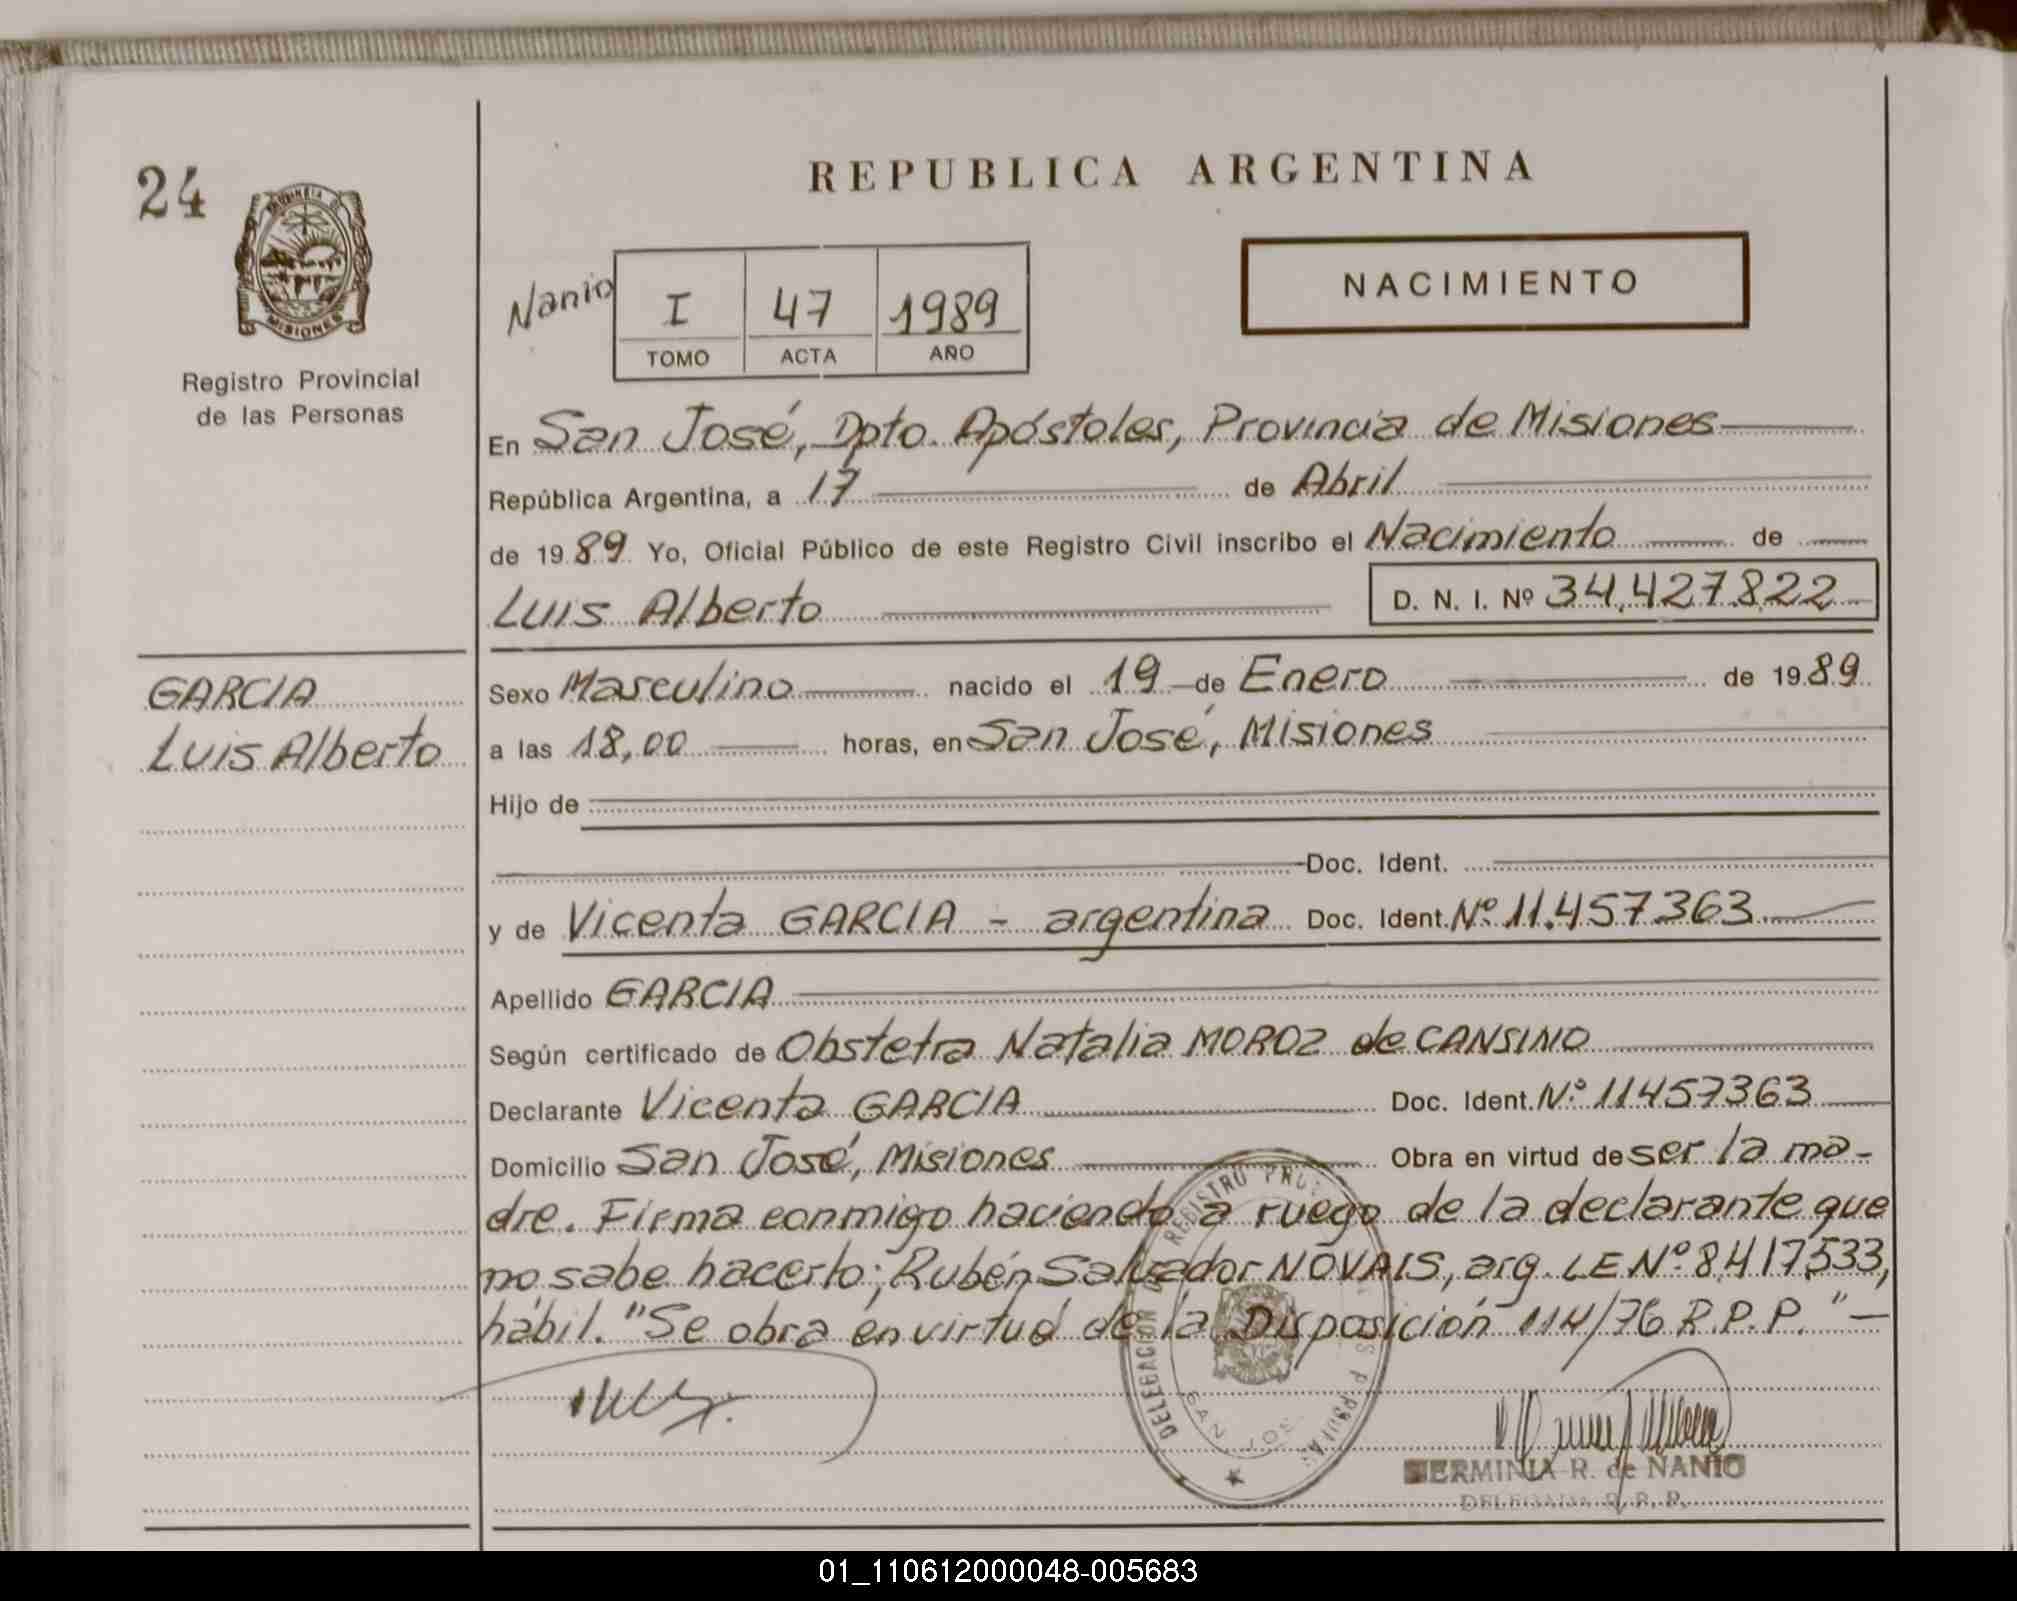 24
PROVINCIA DE
MISIONES
Registro Provincial
de las Personas
REPUBLICA ARGENTINA
NACIMIENTO
Nanio
I 47 1989
TOMO ACTA AÑO
En San José, Dpto. Apóstoles, Provincia de Misiones
República Argentina, a 17 de Abril
de 1989 Yo, Oficial Público de este Registro Civil inscribo el Nacimiento de
Luis Alberto D. N. I. Nº 34.427.822
GARCIA
Luis Alberto
Sexo Masculino nacido el 19 de Enero de 1989
a las 18,00 horas, en San José, Misiones
Hijo de
Doc. Ident.
y de Vicenta GARCIA - argentina Doc. Ident. Nº 11.457.363
Apellido GARCIA
Según certificado de Obstetra Natalia MOROZ de CANSINO
Declarante Vicenta GARCIA Doc. Ident. Nº 11457363
Domicilio San José, Misiones Obra en virtud de ser la ma-
dre. Firma conmigo haciendo a ruego de la declarante que
no sabe hacerlo; Rubén Salvador NOVAIS, arg. LE Nº 8.417.533,
hábil. "Se obra en virtud de la Disposición 114/76 R.P.P." -
DELEGACION REGISTRO
SAN JOSE
HERMINIA R. de NANIO
DELEGADA R. P. P.
01_110612000048-005683